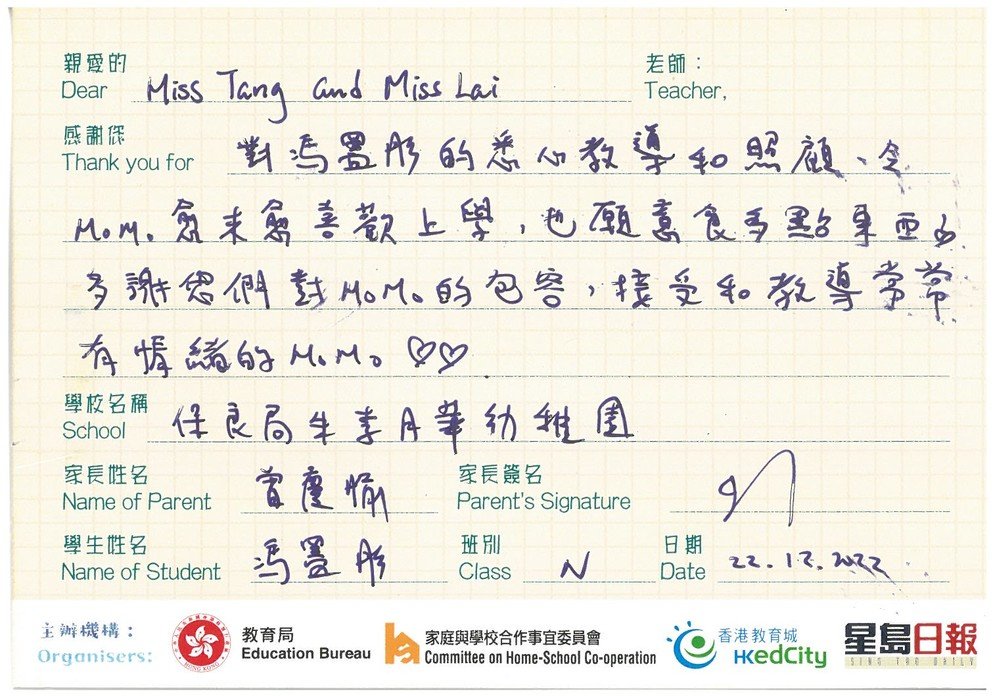 親愛的 老師：
Dear Miss Tang and Miss Lai Teacher,
感謝您
Thank you for 對馮置彤的悉心教導和照顧、令
M.M. 愈來愈喜歡上學，也願意食多點東西。
多謝您們對 MoMo 的包容，接受和教導常常
有情緒的 MoMo ♡♡
學校名稱
School 保良局朱李月華幼稚園
家長姓名 家長簽名
Name of Parent 曾慶愉 Parent's Signature
學生姓名 班別 日期
Name of Student 馮置彤 Class N Date 22.12.2022
主辦機構：
Organisers:
教育局
Education Bureau
家庭與學校合作事宜委員會
Committee on Home-School Co-operation
香港教育城
HKedCity
星島日報
SING TAO DAILY